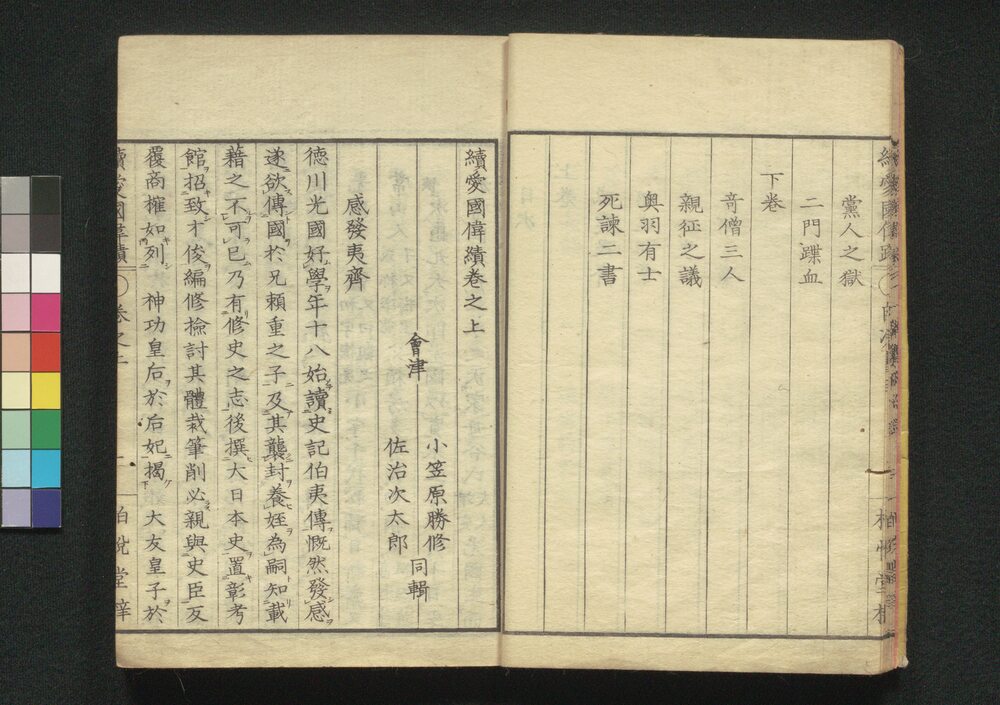 黨人之獄
二門蹀血
下卷
竒僧三人
親征之議
奥羽有士
死諫二書
續愛國偉績卷之上
會津
小笠原勝修
佐治次太郎
同輯
感發夷齊
德川光國好學年十八始讀史記伯夷傳慨然發感
遂欲傳國於兄頼重之子及其襲封養姪為嗣知載
藉之不可已乃有修史之志後撰大日本史置彰考
館招致才俊編修撿討其體裁筆削必親與史臣反
覆商搉如列神功皇后於后妃揭大友皇子於
續愛國偉績